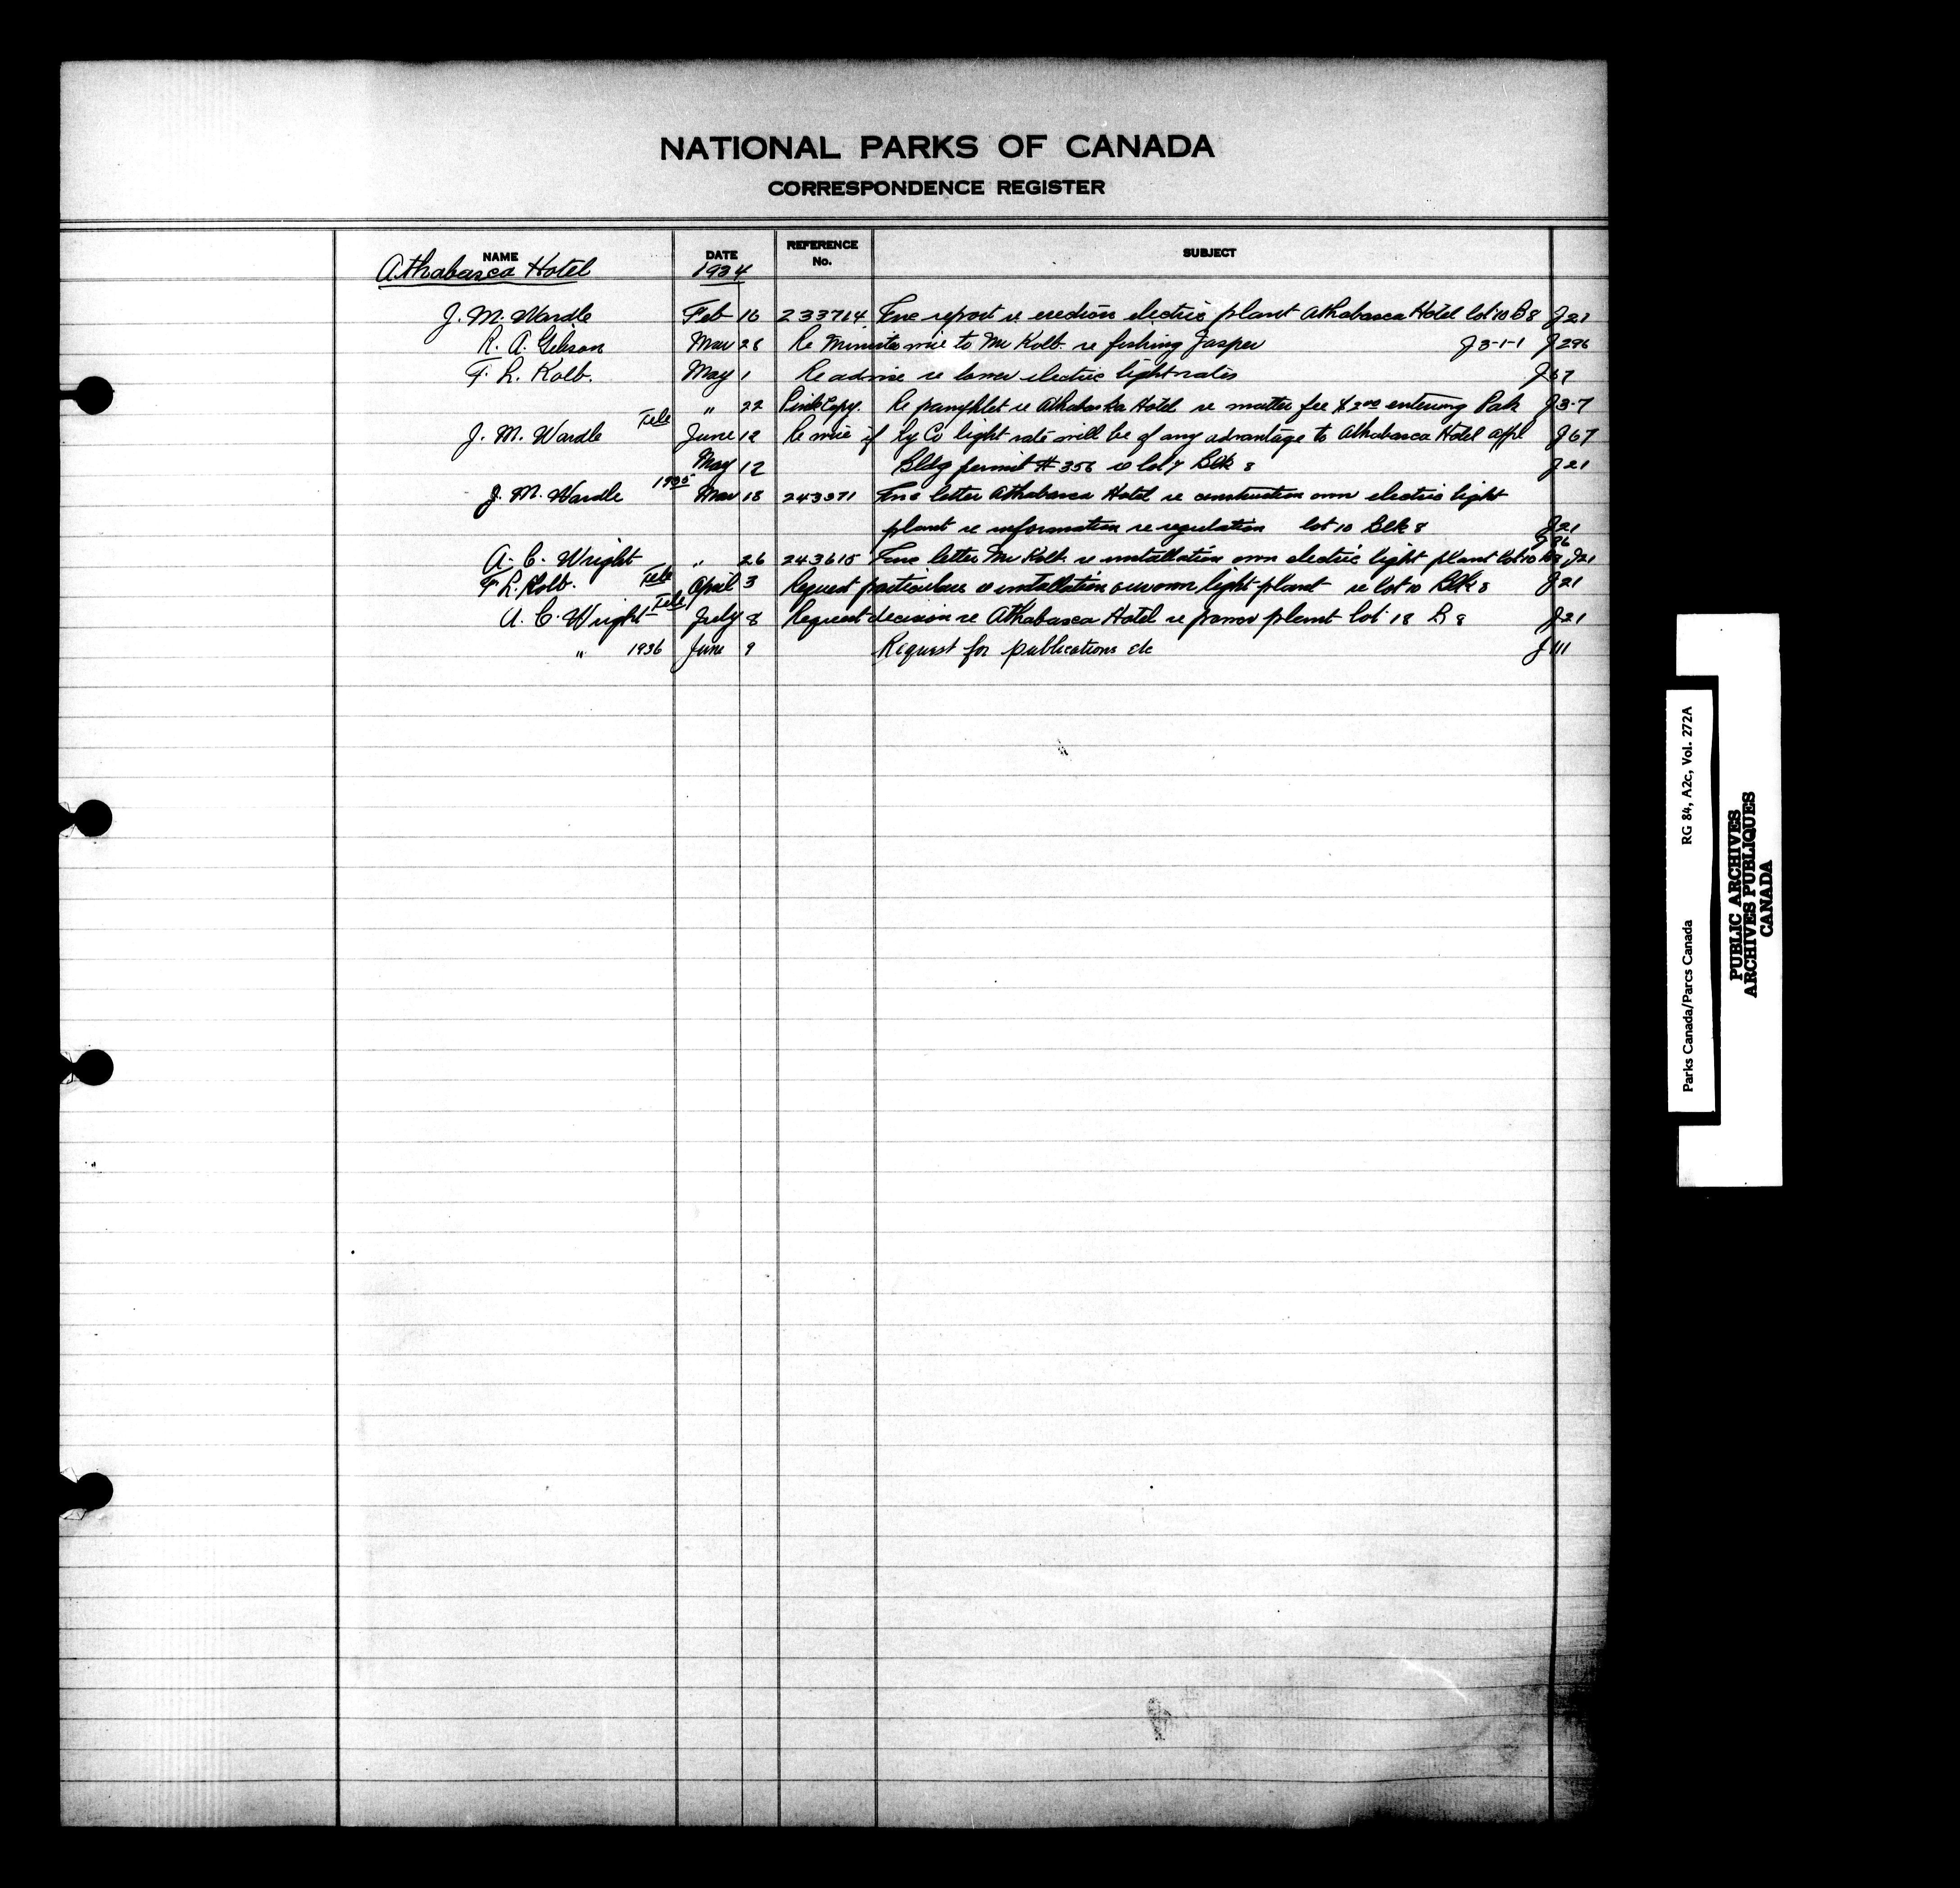 NATIONAL PARKS OF CANADA
CORRESPONDENCE REGISTER
NAME DATE REFERENCE No. SUBJECT
Athabasca Hotel 1934
J. M. Wardle Feb 16 233714 Enc report re erection electric plant Athabasca Hotel lot 10 B 8 J21
R. A. Gibson Mar 28 Re Minister wire to Mr Kolb re fishing Jasper J3-1-1 J296
F. L. Kolb. May 1 Re advise re lower electric light rates J67
" 22 Pink Copy. Re pamphlet re Athabaska Hotel re matter fee $2.00 entering Park J3-7
J. M. Wardle Tele June 12 Re wire if Ry Co light rate will be of any advantage to Athabasca Hotel appl J67
May 12 Bldg permit # 356 re lot 7 Blk 8 J21
J. M. Wardle 1935 Mar 18 243371 Enc letter Athabasca Hotel re construction own electric light
plant re information re regulation lot 10 Blk 8 J21
A. C. Wright " 26 243615 Enc letter Mr Kolb re installation own electric light plant lot 10 B8 J21
F. L. Kolb. Tele April 3 Request particulars re installation own light plant re lot 10 Blk 8 J21
A. C. Wright Tele July 8 Request decision re Athabasca Hotel re power plant lot 18 B 8 J21
" 1936 June 9 Request for publications etc J111
Parks Canada/Parcs Canada RG 84, A2c, Vol. 272A
PUBLIC ARCHIVES
ARCHIVES PUBLIQUES
CANADA